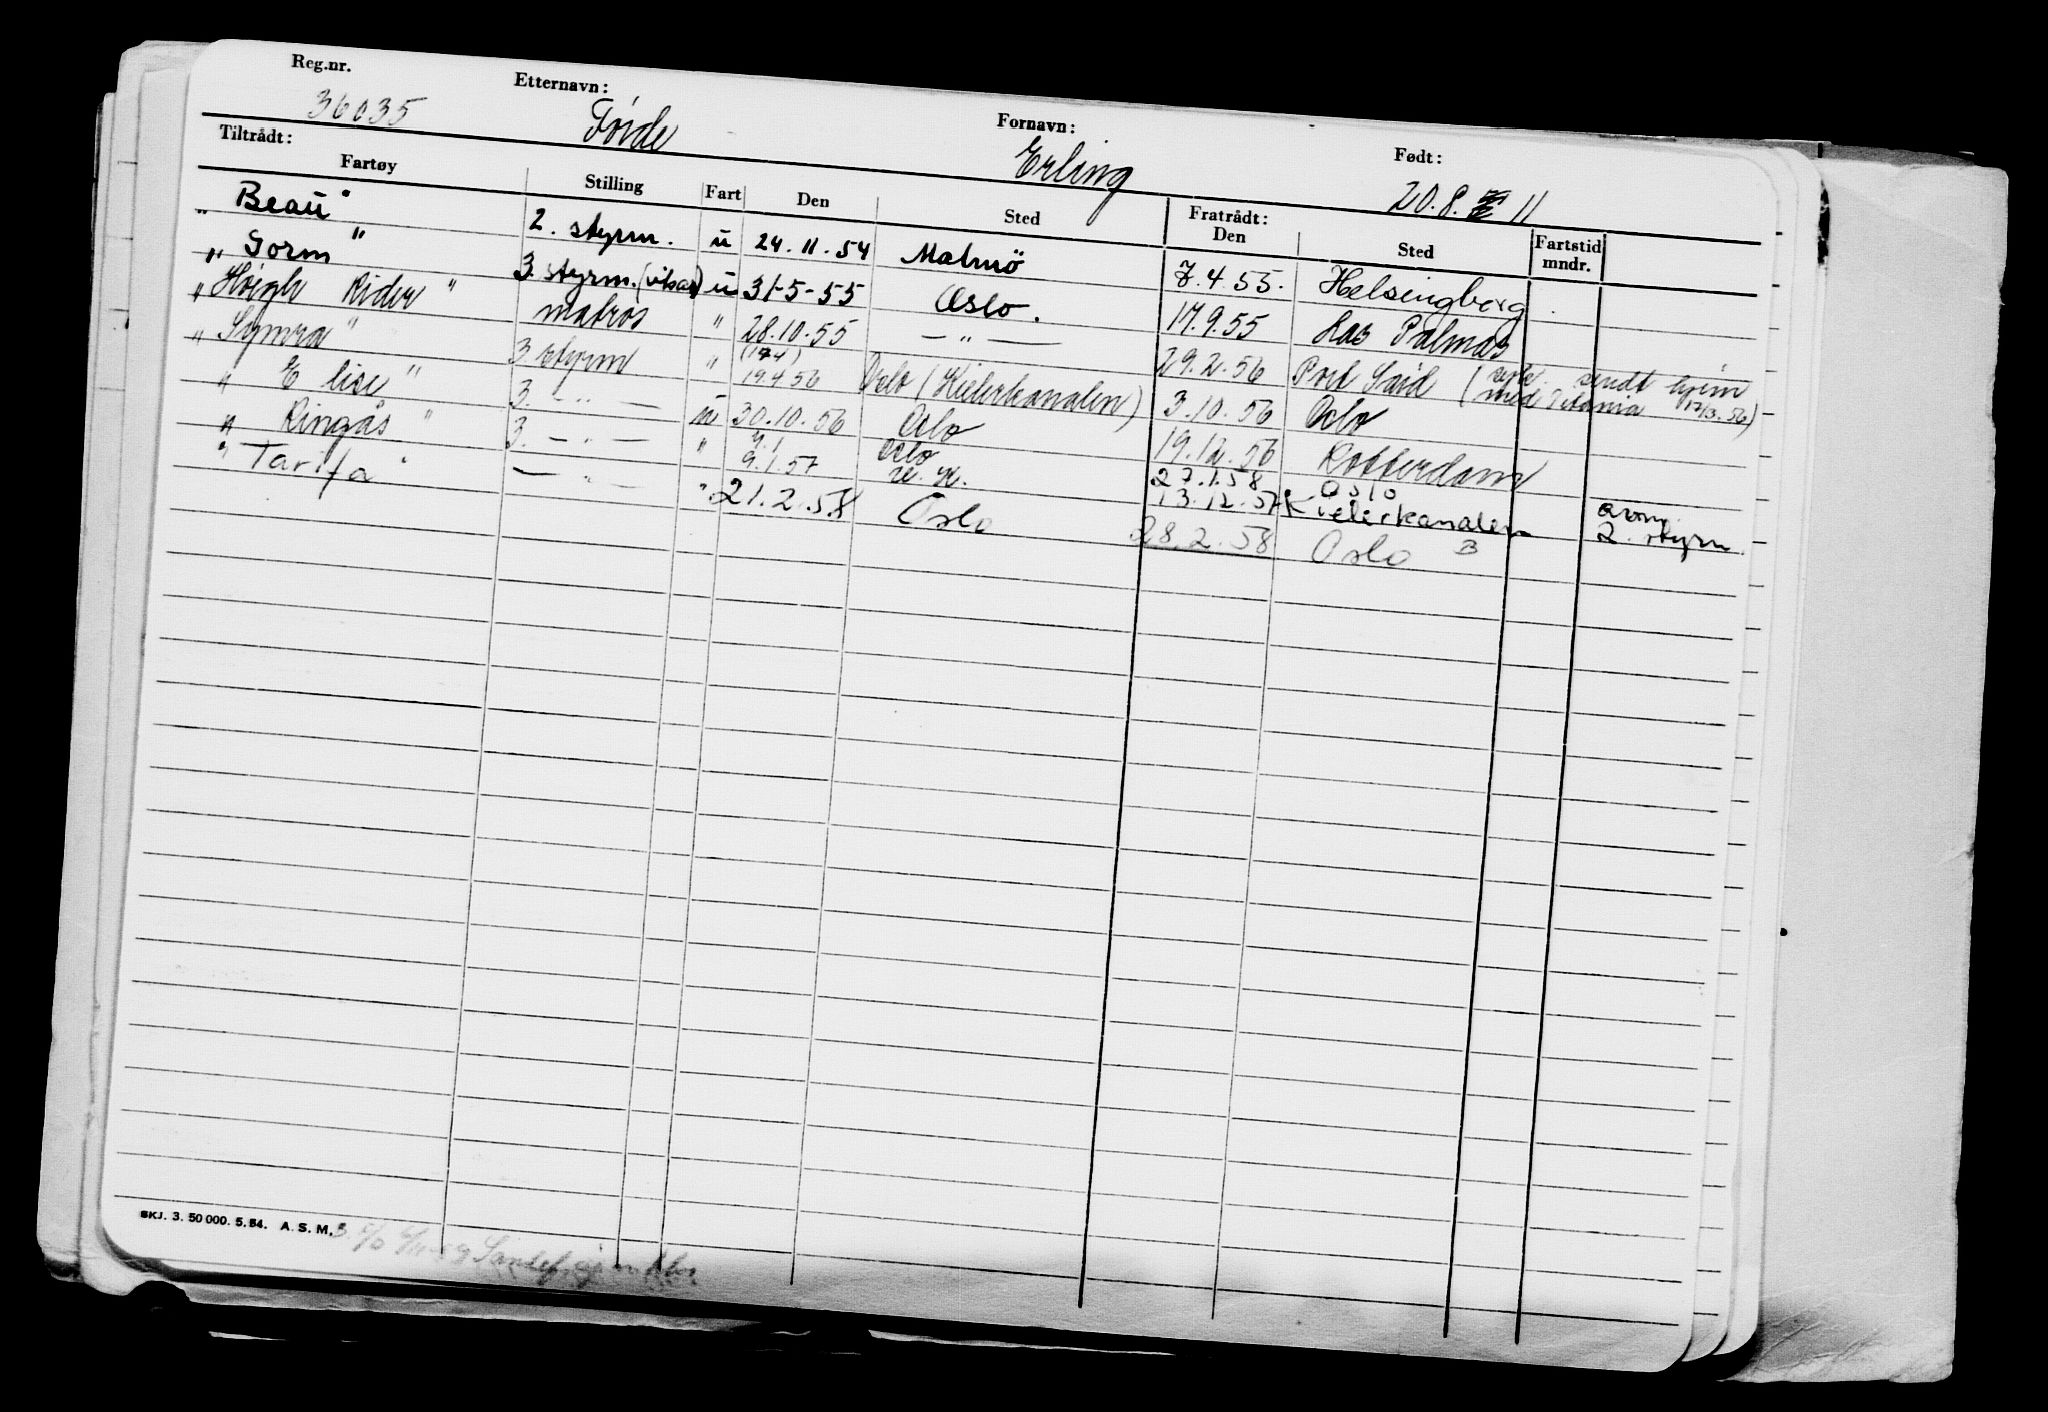 Reg.nr. 36035 Etternavn: Førde Fornavn: Erling Født: 20.8. 11
Tiltrådt: Fratrådt:
Fartøy Stilling Fart Den Sted Den Sted Fartstid mndr.
"Beau" 2. styrm. u 24.11.54 Malmö 7.4.55. Helsingborg
"Gorm" 3. styrm. (vikar) u 31-5-55 Oslo. 17.9.55 Las Palmas
"Höegh Rider" matros " 28.10.55 — " — 29.2.56 Port Said (syk. sendt hjem med Titania 17/3.56)
"Symra" 3 styrm " (17/4) 19.4.56 Oslo (Kielerkanalen) 3.10.56 Oslo
" Elise" 3. — " — u 30.10.56 Oslo 19.12.56 Rotterdam
" Ringås" 3. — " — " 9.1 9.1.57 Oslo U.K. 27.1.58 Oslo 13.12.57 Kielerkanalen avm. 2. styrm.
"Tarifa" — " — " 21.2.58 Oslo 28.2.58 Oslo B
SKJ. 3. 50 000. 5. 54. A. S. M.